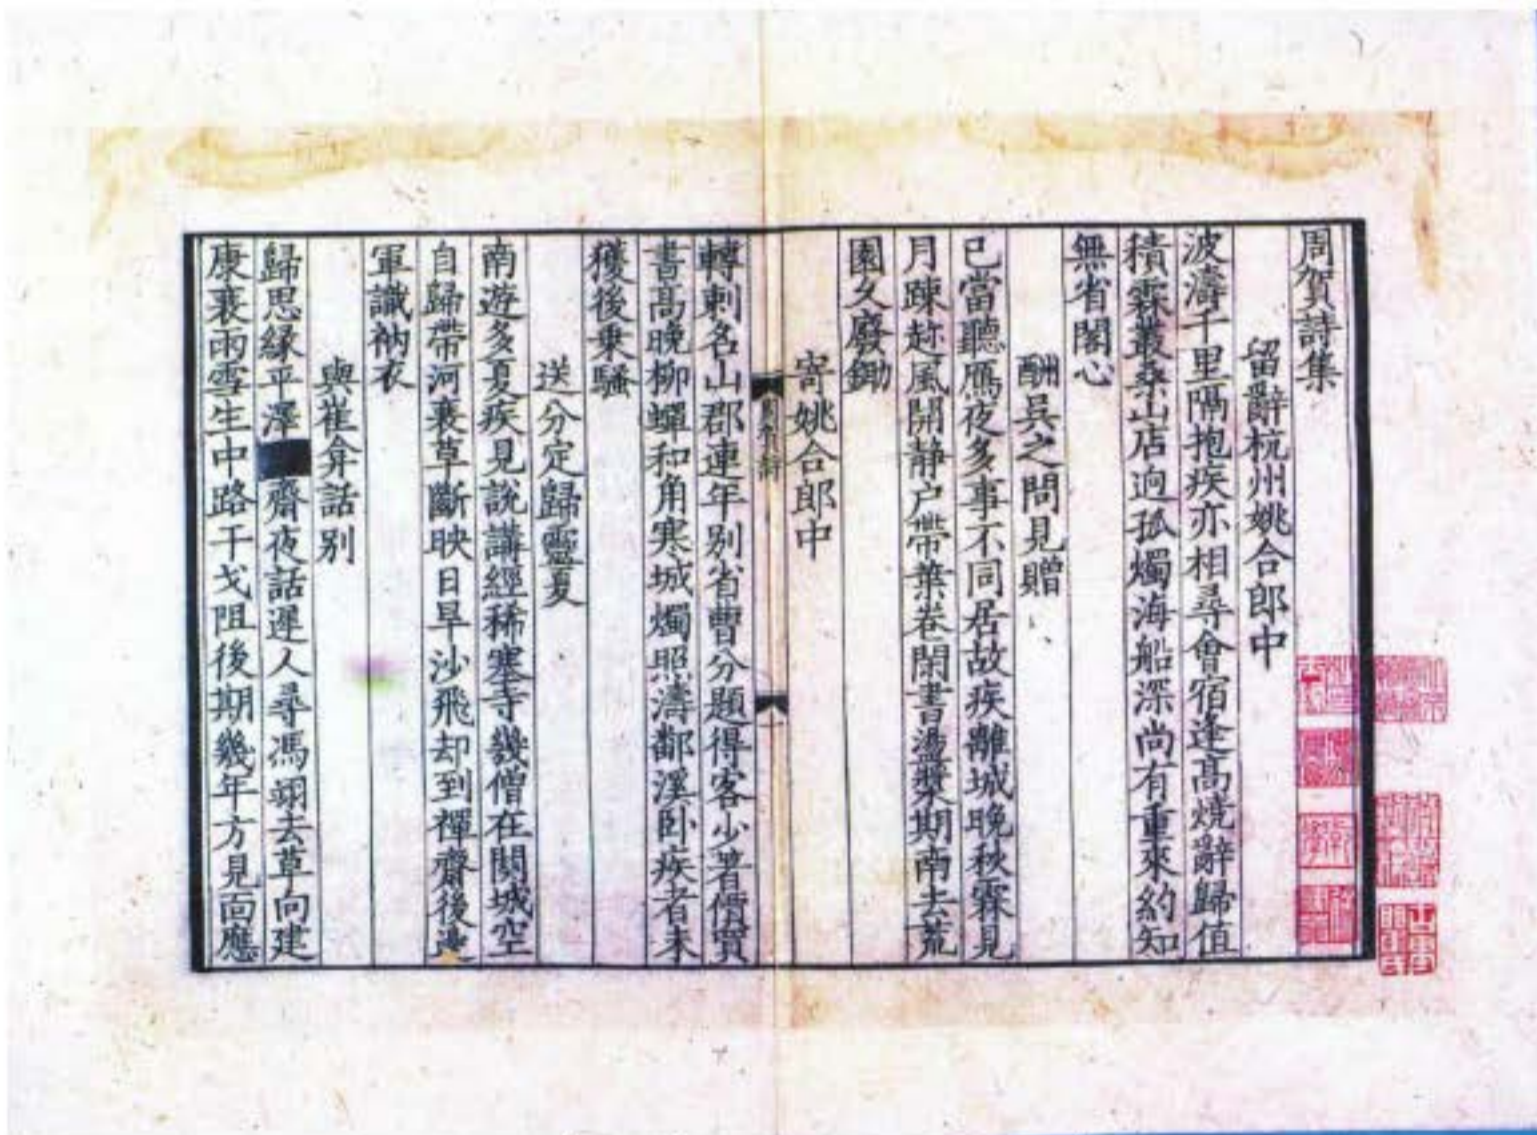 周賀詩集
留辭杭州姚合郎中
波濤千里隔抱疾亦相尋會宿逢高燒辭歸值
積霖叢桑山店迥孤燭海船深尚有重來約知
無省閣心
酬吳之問見贈
已當聽鴈夜多事不同居故疾離城晚秋霖見
月踈趂風開靜户帶葉卷閑書盪槳期南去荒
園久廢鋤
寄姚合郎中
轉刺名山郡連年別省曹分題得客少著價買
書高晚柳蟬和角寒城燭照濤鄱溪卧疾者未
獲後乗騷
送分定歸靈夏
南遊多夏疾見說講經稀塞寺幾僧在關城空
自歸帶河衰草斷映日旱沙飛却到禪齋後邊
軍識衲衣
與崔弇話別
歸思緣平澤齋夜話遲人尋馮翊去草向建
康衰雨雪生中路干戈阻後期幾年方見面應